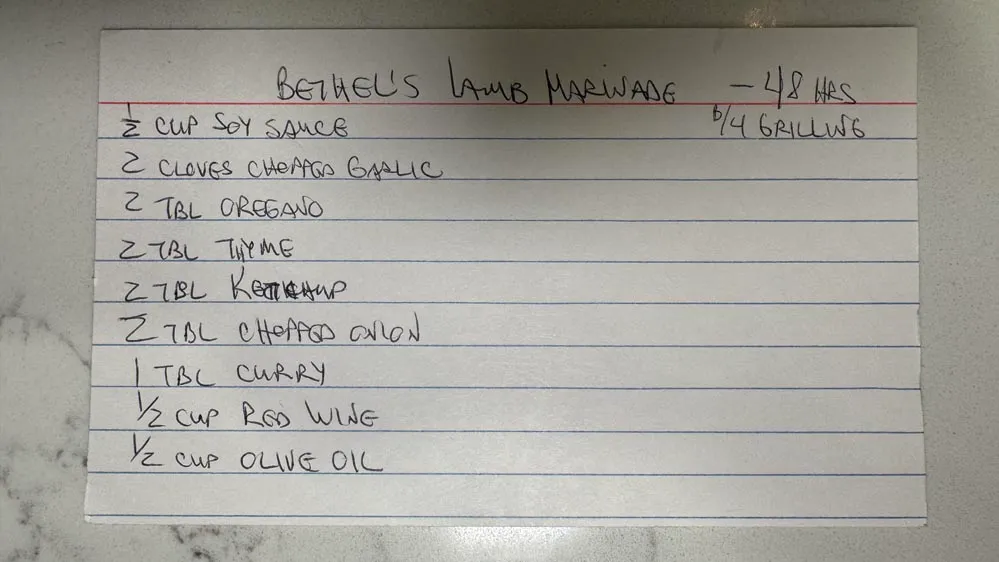 BETHEL'S LAMB MARINADE - 48 HRS
b/4 GRILLING
1/2 CUP SOY SAUCE
2 CLOVES CHOPPED GARLIC
2 TBL OREGANO
2 TBL THYME
2 TBL KETCHUP
2 TBL CHOPPED ONION
1 TBL CURRY
1/2 CUP RED WINE
1/2 CUP OLIVE OIL